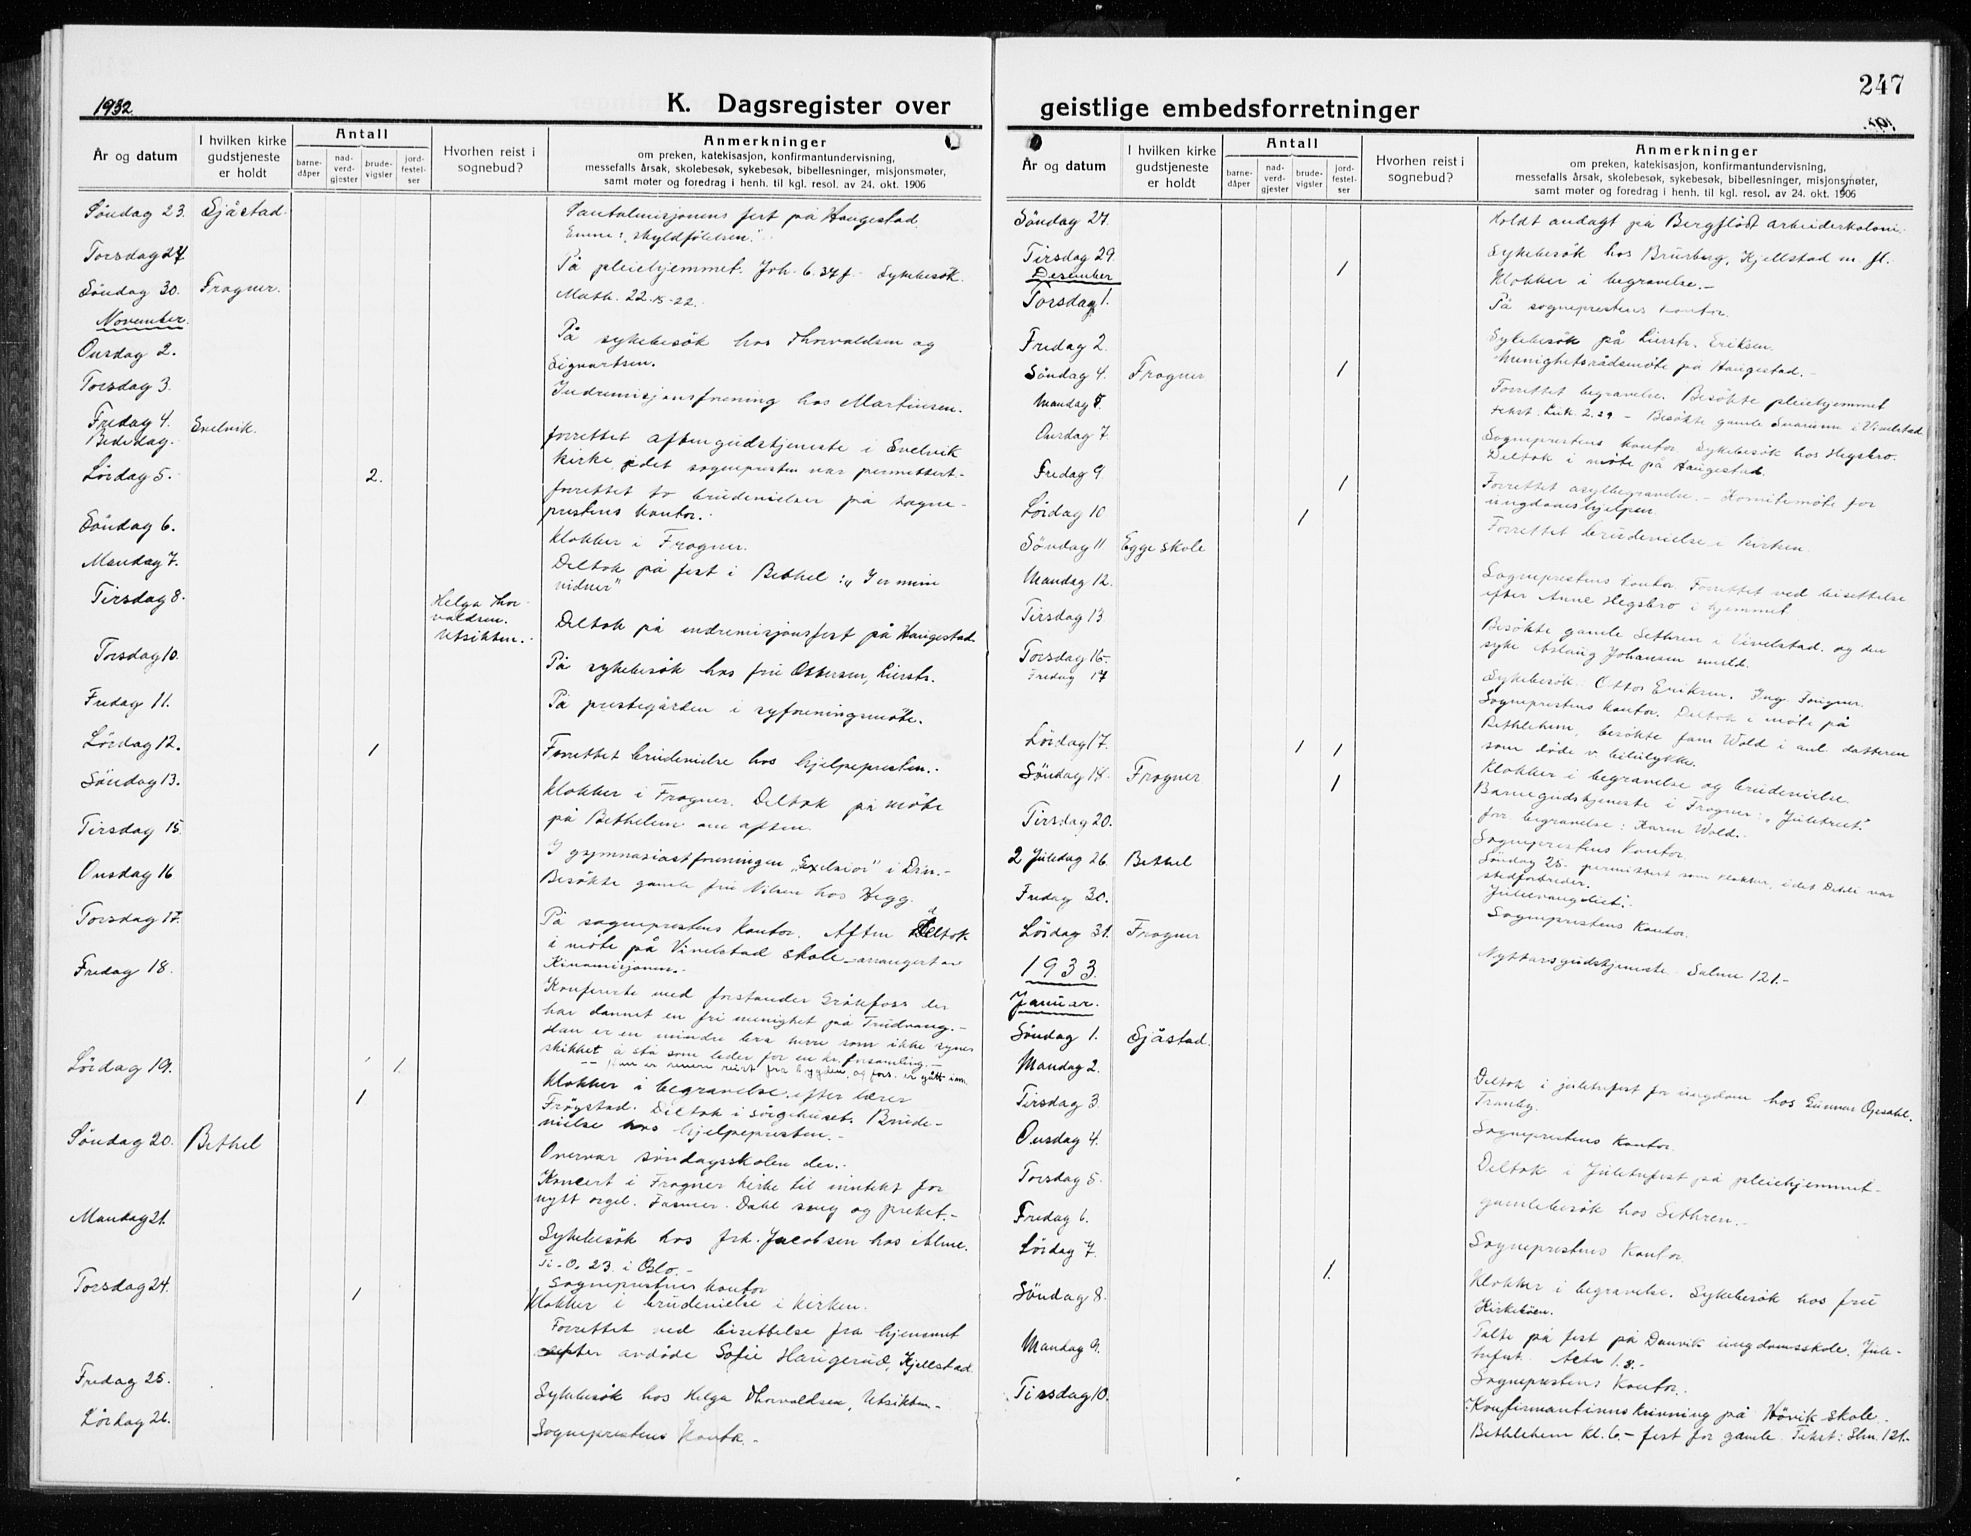 1932.
K. Dagsregister over
År og datum
I hvilken kirke gudstjeneste er holdt
Antall
barne-dåper
nad-verd-gjester
brude-vigsler
jord-festel-ser
Hvorhen reist i sognebud?
Anmerkninger
om preken, katekisasjon, konfirmantundervisning,
messefalls årsak, skolebesøk, sykebesøk, bibellesninger, misjonsmøter,
samt møter og foredrag i henh. til kgl. resol. av 24. okt. 1906
Søndag 23. Sjåstad. Santalmisjonens fest på Haugestad
Emne: "skyldfølelsen."
Torsdag 27 På pleiehjemmet. Joh. 6.37f. Sykebesøk.
Søndag 30. Frogner. Math. 22.15-22.
November.
Onsdag 2. På sykebesøk hos Thorvaldsen og
Sigvartsen.
Torsdag 3. Indremisjonsforening hos Martinsen.
Fredag 4. Svelvik. forrettet aftengudstjeneste i Svelvik
Bededag. kirke, idet sognepresten var permittert.
Lørdag 5. 2. forrettet to brudevielser på sogne-
prestens kontor.
Søndag 6. klokker i Frogner.
Mandag 7. Deltok på fest i Bethel: "I er mine
vidner"
Tirsdag 8. Helga Thor-
valdsen.
Utsikten. Deltok på indremisjonsfest på Haugestad
Torsdag 10. På sykebesøk hos fru Ottersen, Lierstr.
Fredag 11. På prestegården i syforeningsmøte.
Lørdag 12. 1 Forrettet brudevielse hos hjelpepresten.
Søndag 13. klokker i Frogner. Deltok på møte
på Bethelem om aften.
Tirsdag 15. I gymnasiastforeningen "Exelsior" i Drm.-
Onsdag 16 Besøkte gamle fru Nilsen hos Hegg.
Torsdag 17. På sogneprestens kontor. Aften Deltok
i møte på Vivelstad skole arrangert av
Kinamisjonen.
Fredag 18. Konfererte med forstander Gråkfoss der
har dannet en fri menighet på Trudvang.-
Han er en mindre bra herre som ikke synes
skikket å stå som leder for en kr. forsamling.-
Lørdag 19. 1. klokker i begravelse efter lærer
1 Frøystad. Deltok i sørgehuset. Brude-
vielse hos hjelpepresten.-
Søndag 20. Bethel Overvar søndagsskolen der.
Koncert i Frogner kirke til inntekt for
nytt orgel. Dahl sang og preket.-
Mandag 21. Sykebesøk hos frk. Jacobsen hos Alme.
Ti-O. 23. i Oslo.-
Sogneprestens kontor
Torsdag 24. 1 Klokker i brudevielse i kirken.
Forrettet ved bisettelse fra hjemmet
efter avdøde Sofie Haugerud, Kjellstad.
Fredag 25. Sykebesøk hos Helga Thorvaldsen, Utsikten.-
Lørdag 26. Sogneprestens Kontor.-
247
geistlige embedsforretninger
År og datum
I hvilken kirke gudstjeneste er holdt
Antall
barne-dåper
nad-verd-gjester
brude-vigsler
jord-festel-ser
Hvorhen reist i sognebud?
Anmerkninger
om preken, katekisasjon, konfirmantundervisning,
messefalls årsak, skolebesøk, sykebesøk, bibellesninger, misjonsmøter,
samt møter og foredrag i henh. til kgl. resol. av 24. okt. 1906
Søndag 27. Holdt andagt på Bergfløðt arbeiderkoloni.
Tirsdag 29. 1 Sykebesøk hos Brusberg, Kjellstad m. fl.
Desember Klokker i begravelse.-
Torsdag 1. På sogneprestens kontor.
Fredag 2. Sykebesøk på Lierstr. Eriksen.
Søndag 4. Frogner 1 Menighetsrådsmøte på Haugestad.-
Mandag 5. Forrettet begravelse. Besøkte pleiehjemmet
tekst. Luk. 2.29 - Besøkte gamle i Vivelstad
Onsdag 7. Sogneprestens kontor. Sykebesøk hos Hegsbro.
Deltok i møte på Haugestad.
Fredag 9. 1 Forrettet asylbegravelse.- Komitemøte for
ungdomshjelpen.
Lørdag 10 1 Forrettet brudevielse i kirken.
Søndag 11 Egge skole
Mandag 12. Sogneprestens kontor. Forrettet ved bisettelse
efter Anne Hegsbro i hjemmet
Tirsdag 13. Besøkte gamle Sethren i Vivelstad. og den
syke Aslaug Johansen smstd.
Torsdag 15. Sykebesøk: Ottos Eriksen. Ing. Fougner.
Fredag 17 Sogneprestens kontor. Deltok i møte på
Bethlehem, besøkte fam Wold i anl. datteren
Lørdag 17. 1 1 som døde v bilulykke.
Klokker i begravelse og brudevielse.
Søndag 18. Frogner 1 Barnegudstjeneste i Frogner: "Juletreet".
for begravelse: Karen Wold.
Tirsdag 20. Sogneprestens Kontor
2 Juledag 26. Bethel Søndag 25. permittert som klokker, idet Dehli var
stedfortreder.
Juleevangeliet.
Fredag 30. Sogneprestens Kontor.
Lørdag 31. Frogner Nyttårsgudstjeneste. Salme 121.-
1933.
Januar.
Søndag 1. Sjåstad.
Mandag 2. Deltok i juletrefest for ungdom hos Gunnar Opsahl.
Tranby.
Tirsdag 3. Sogneprestens Kontor.
Onsdag 4. Deltok i Juletrefest på pleiehjemmet-
Torsdag 5. gamlebesøk hos Sethren.-
Fredag 6. Sogneprestens Kontor
Lørdag 7. 1. Klokker i begravelse. Sykebesøk hos fru
Kirkebøen.
Søndag 8. Talte på fest på Danvik ungdomsskole. Jule-
trefest. Acta 1.8.-
Mandag 9. Sogneprestens Kontor.
Tirsdag 10. Konfirmantinnskrivning på Høvik skole.
Bethlehem kl. 6.- fest for gamle. Tekst: Slm. 121.-